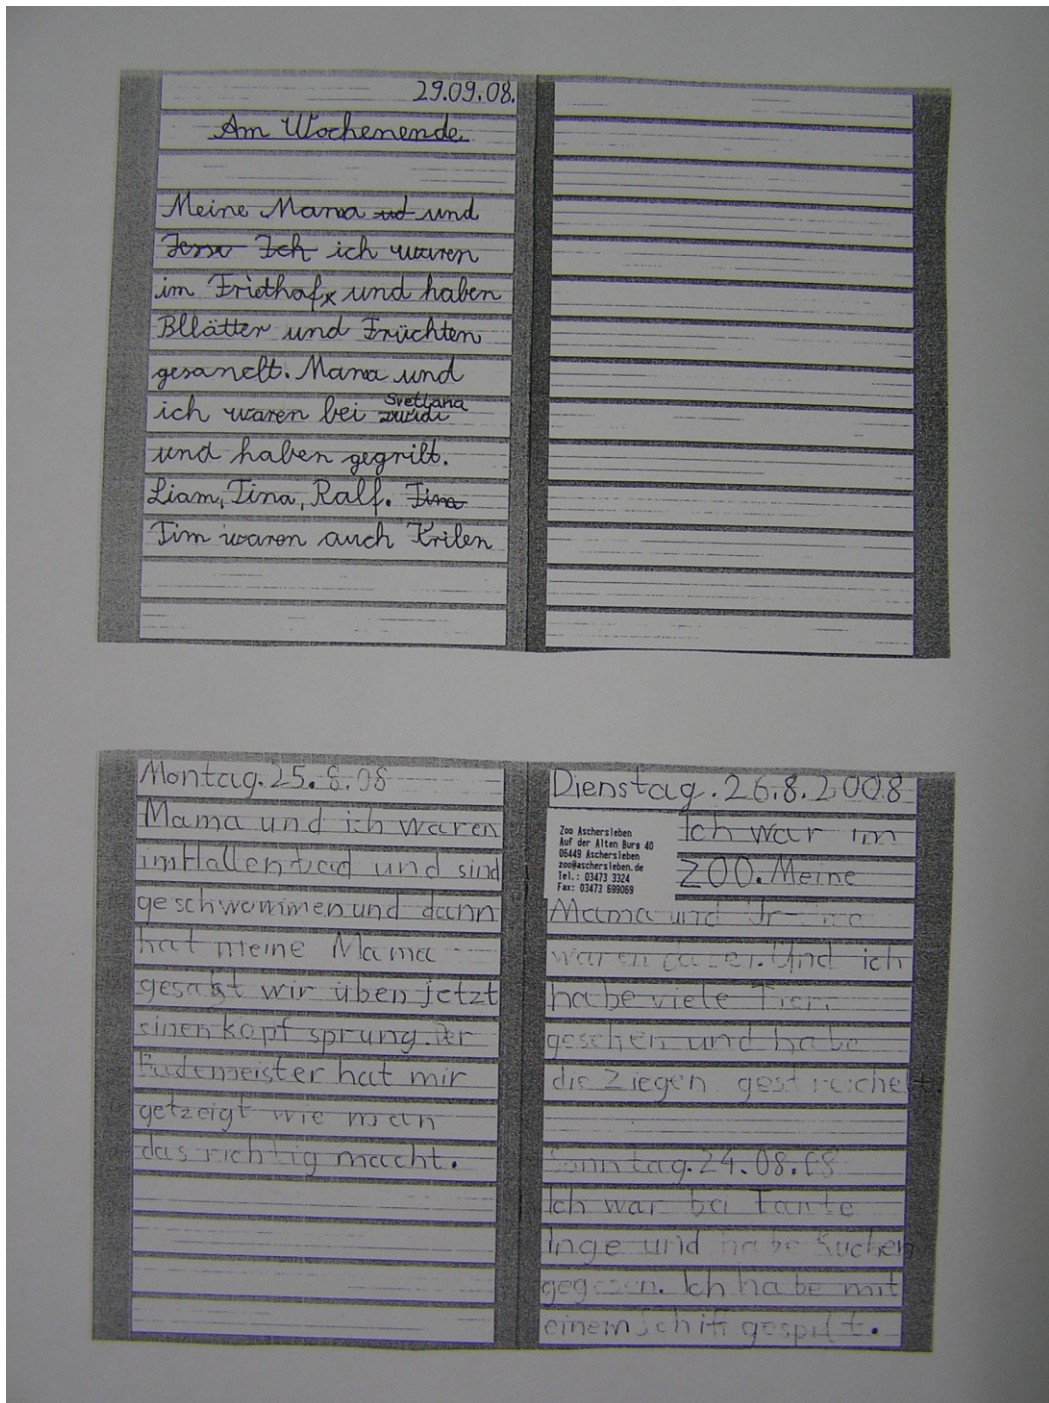 29.09.08.
Am Wochenende
Meine Mama ud und
Ich ich waren
im Friethof und haben
Bllätter und Früchten
gesanelt. Mama und
ich waren bei Svetlana
und haben gegrilt.
Liam, Tina, Ralf. Tina
Tim waren auch Krilen
Montag. 25.8.08
Mama und ich waren
im Hallenbad und sind
geschwommen und dann
hat meine Mama
gesagt wir üben jetzt
einen kopf sprung. Der
Bademeister hat mir
getzeigt wie man
das richtig macht.
Dienstag. 26.8.2008
Zoo Aschersleben
Auf der Alten Burg 40
06449 Aschersleben
zoo@aschersleben.de
Tel.: 03473 3324
Fax: 03473 699069
Ich war im
ZOO. Meine
Mama und
waren dabei. Und ich
habe viele Tiere
gesehen und habe
die Ziegen gestreichelt.
Sonntag. 24.08.08
Ich war bei Tante
Inge und habe Kuchen
gegessen. Ich habe mit
einem Schiff gespilt.